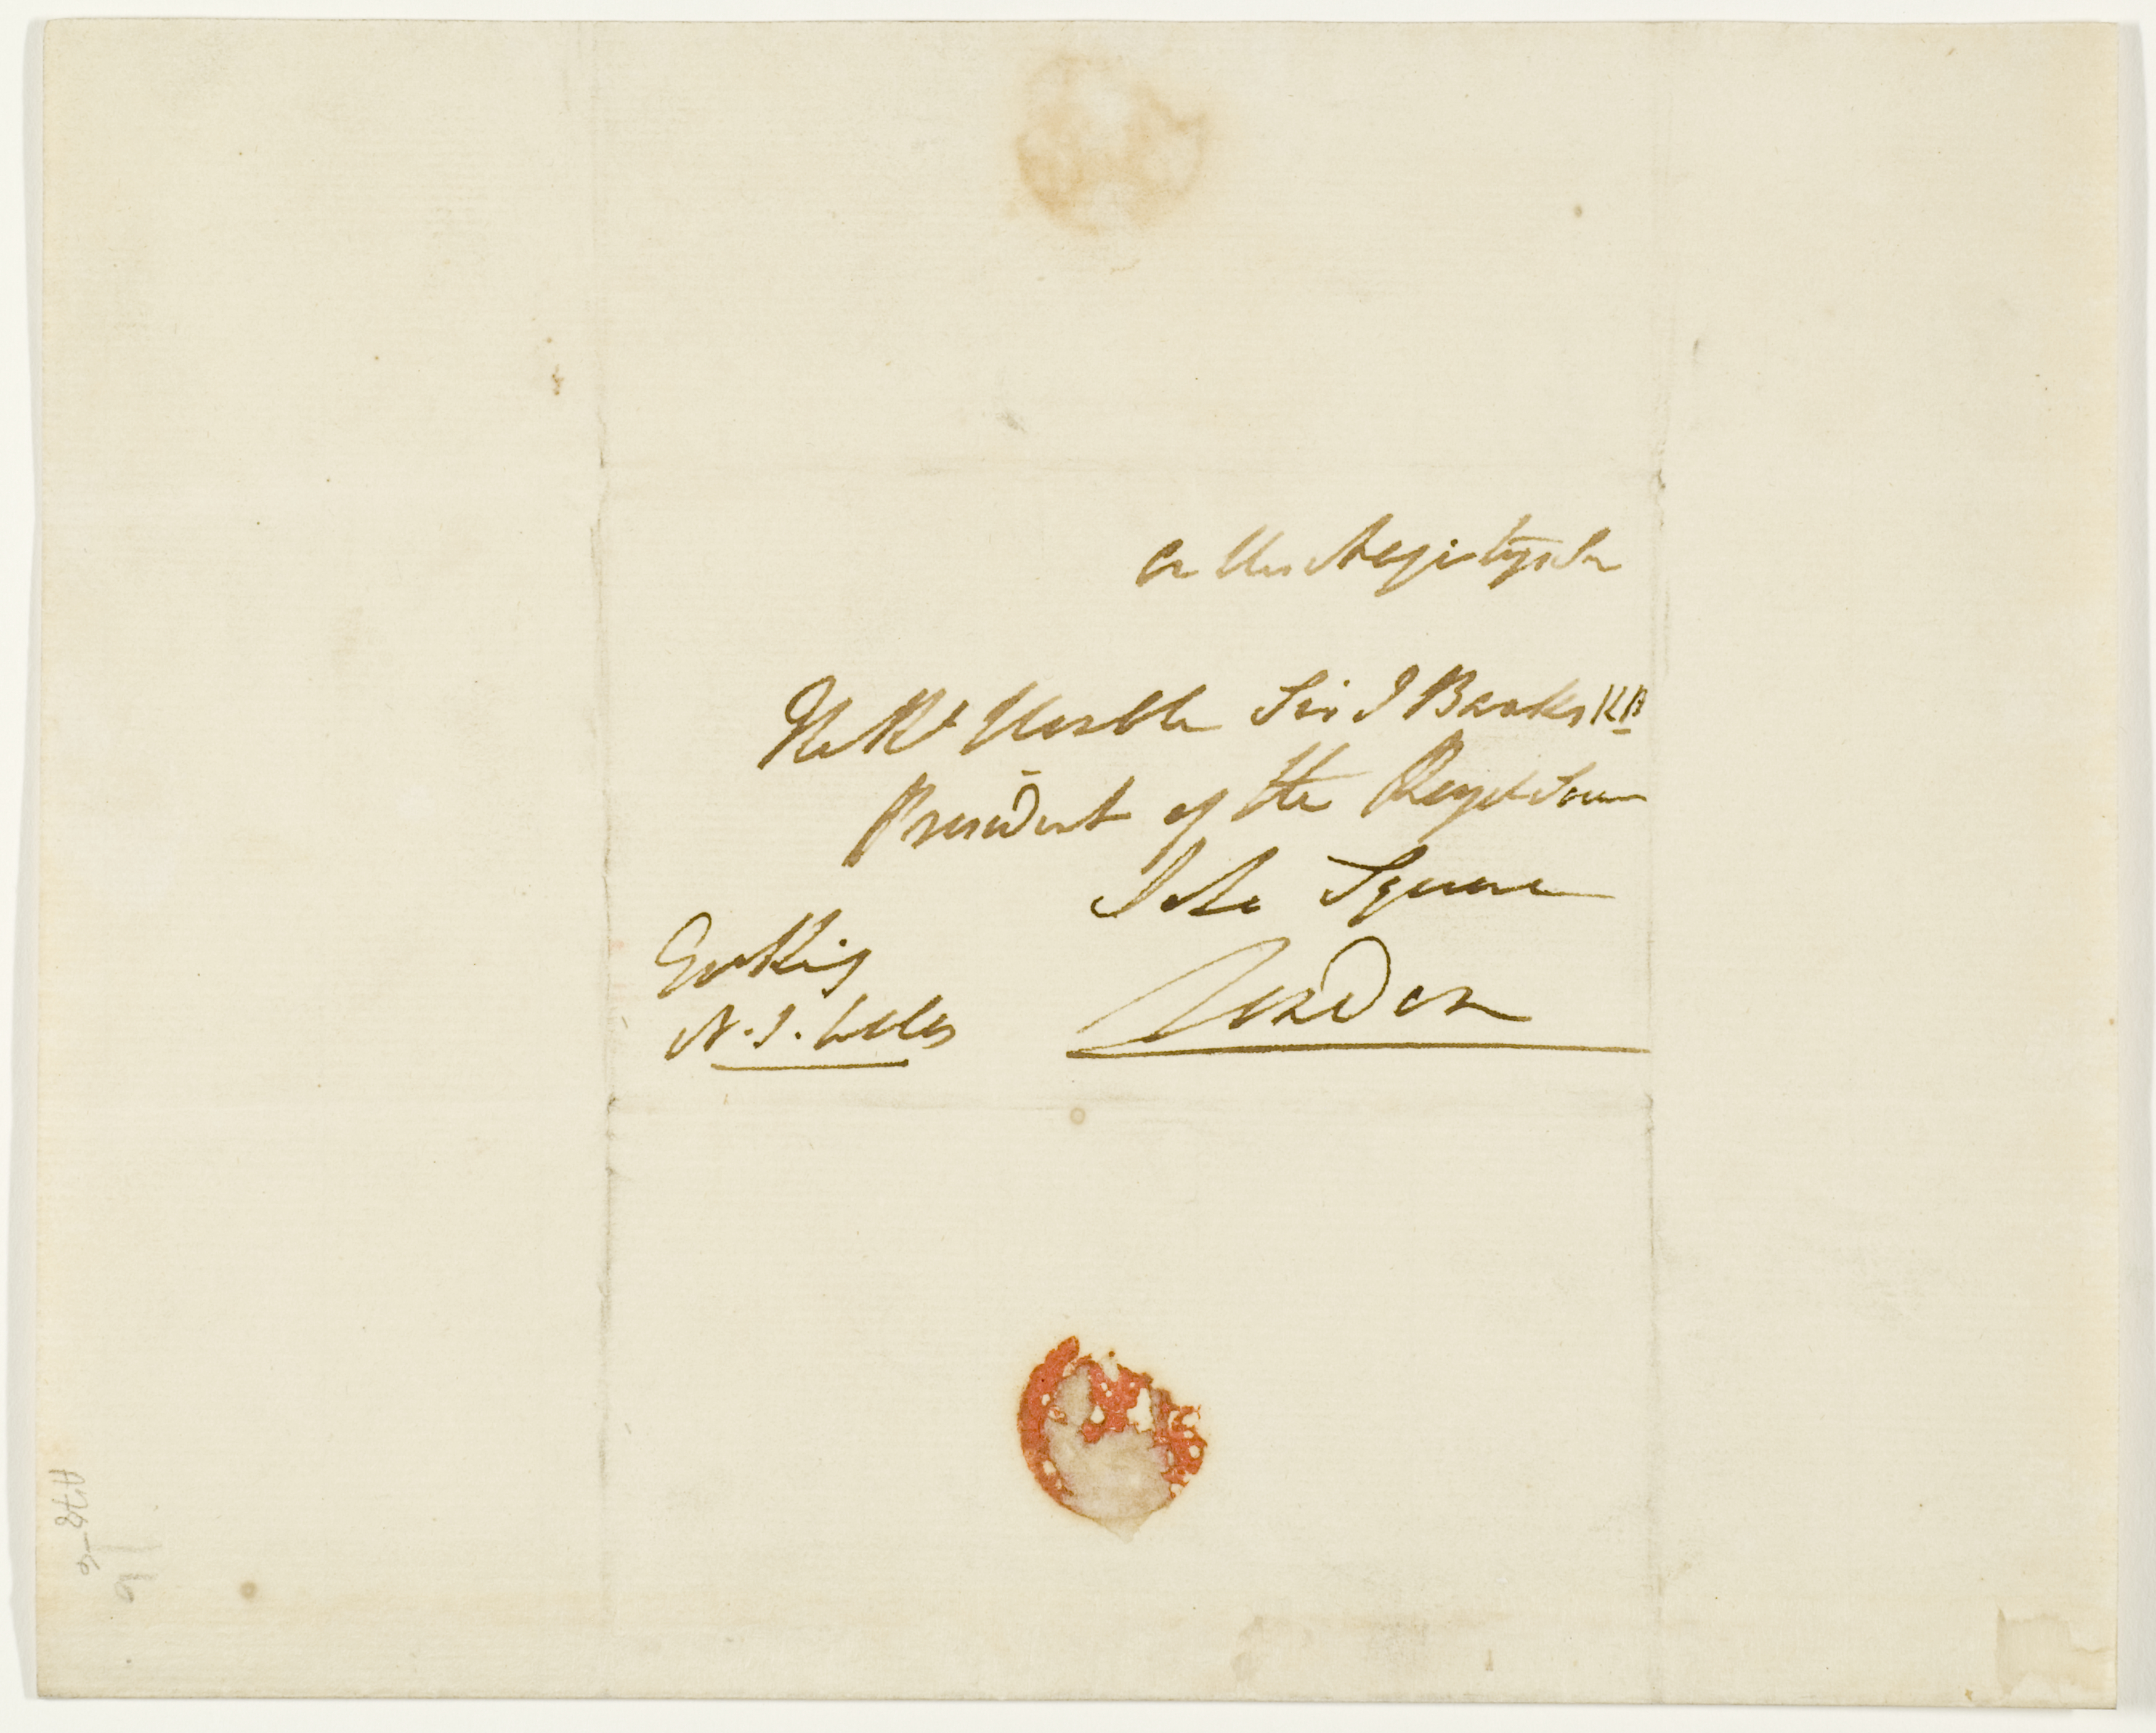 On His Majestys Ser
The Rt Honble Sir J Banks KB
President of the Royal Socie
Soho Square
London
Gov King
N.S. Wales
A78-6